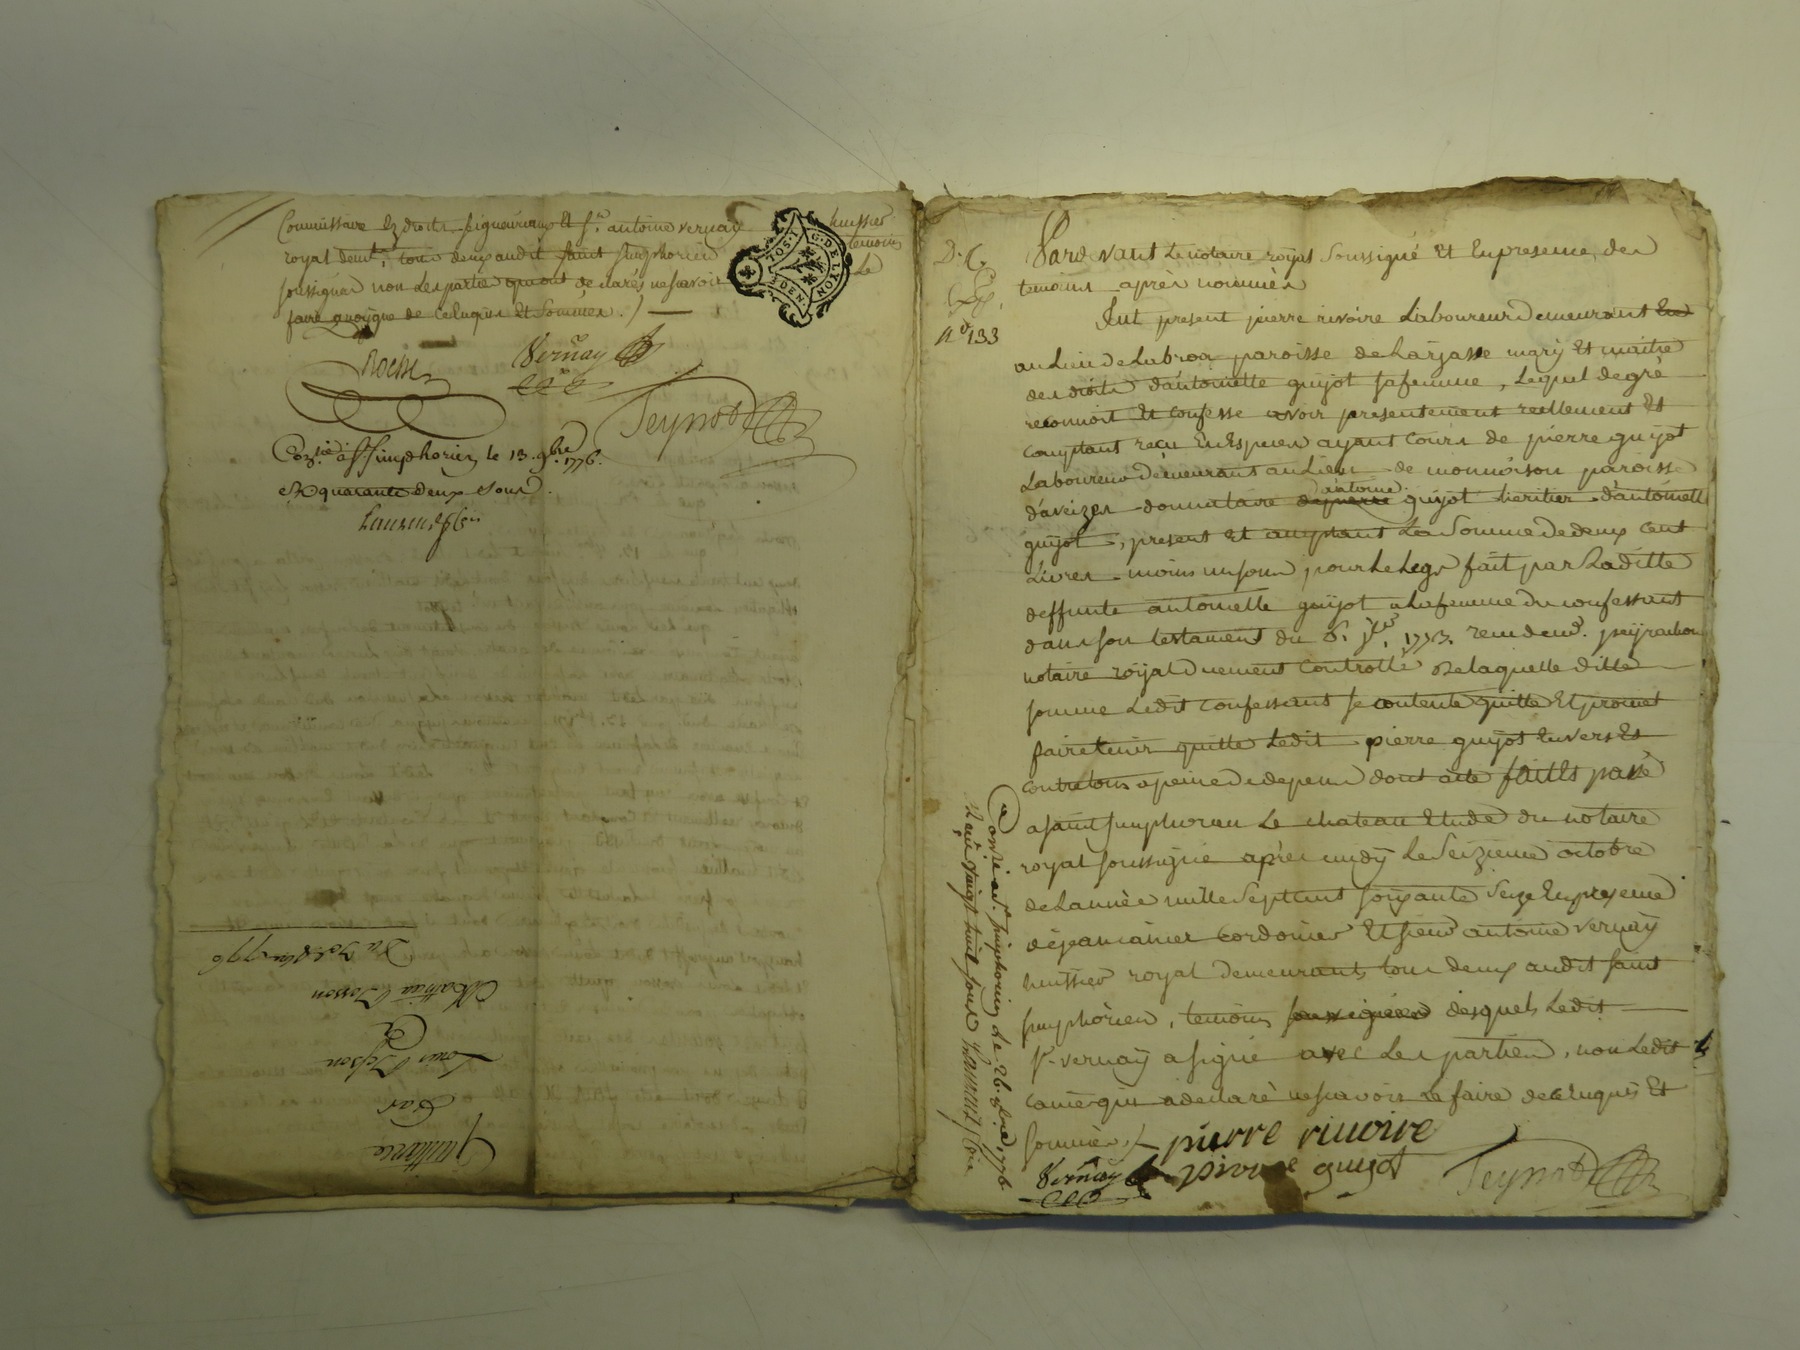 Commissaire ez droits seigneuriaux Et Sr. antoine vernay huissier
royal demt. tous deux audit Saint Simphorien temoins
soussignés non les parties qui ont declarés ne scavoir Le
faire quoyque de Ce Enquis Et Sommés ./.
Roche Vernay
Teynard
Conlé à St. Simphorien le 13. 9bre 1776.
R quarante deux sous.
2 SOLS G. DE LYON
DEN.
Quittance
Par
Louis Besson
A
Mathieu Besson
D. C.
Exp.
No 133
Pardevant Le notaire royal Soussigné Et En presence des
temoins après nommés
Fut present pierre rivoire Laboureur Demeurant
au Lieu de Labroa paroisse de Larjasse mary Et maitre
des droits d'antoinette guyot sa femme, Lequel de gré
reconnoit Et confesse avoir presentement reellement Et
comptant reçu En Especes ayant Cours de pierre guyot
Laboureur Demeurant au Lieu de monnoison paroisse
d'aveizes donnataire d'antoine guyot heritier d'antoinette
guyot, present Et acceptant La Somme de deux cent
Livres moins un sous pour Le Legs fait par Laditte
deffunte antoinette guyot a La femme du confessant
dans son testament du 1773. reçu de me. peyrachon
notaire royal duement Controllé De laquelle ditte
somme Ledit Confessant se contente quitte Et promet
faire tenir quitte Ledit pierre guyot Envers Et
contre tous a peine de depens dont acte fait Et passé
a Saint Simphorien Le chateau Etude du notaire
royal soussigné après midy Le Seizieme octobre
de L'année mille Sept Cent soixante Seize En presence
de jean cornier Cordonier Et sieur antoine vernay
huissier royal demeurants tous deux audit saint
Simphorien, temoins desquels Ledit
Sr. vernay a signé avec Les parties, non Ledit
cornier qui a declaré ne scavoir Le faire de ce Enquis Et
sommés ./. pierre riuoire
Vernay pierre guyot Teynard
Conlé a St. Simphorien le 26. 8bre 1776
Reçu vingt huit sous